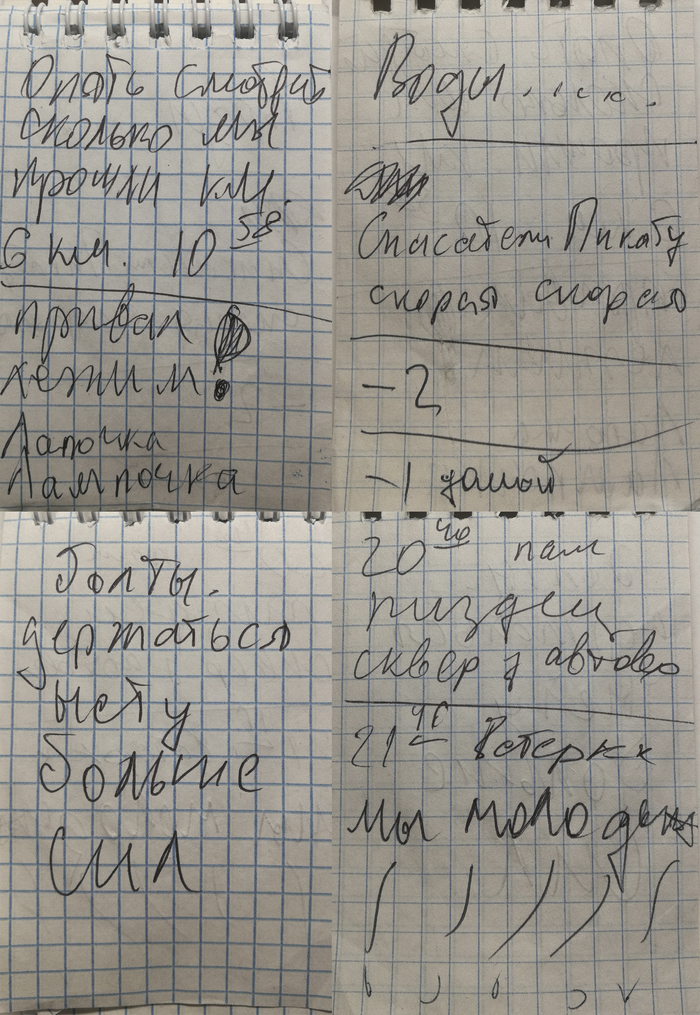 Опять смотрит
сколько мы
прошли км.
6 км. 10 58
привал !
лежим !
Лапочка
Лампочка
Воды.....
Спасатели Пикату
скорая скорая
-2
-1 домой
болты.
держаться
нету
больше
сил
20 40 нам
пиздец
сквер д автово
21
мы молодцы
! ! ! ! !